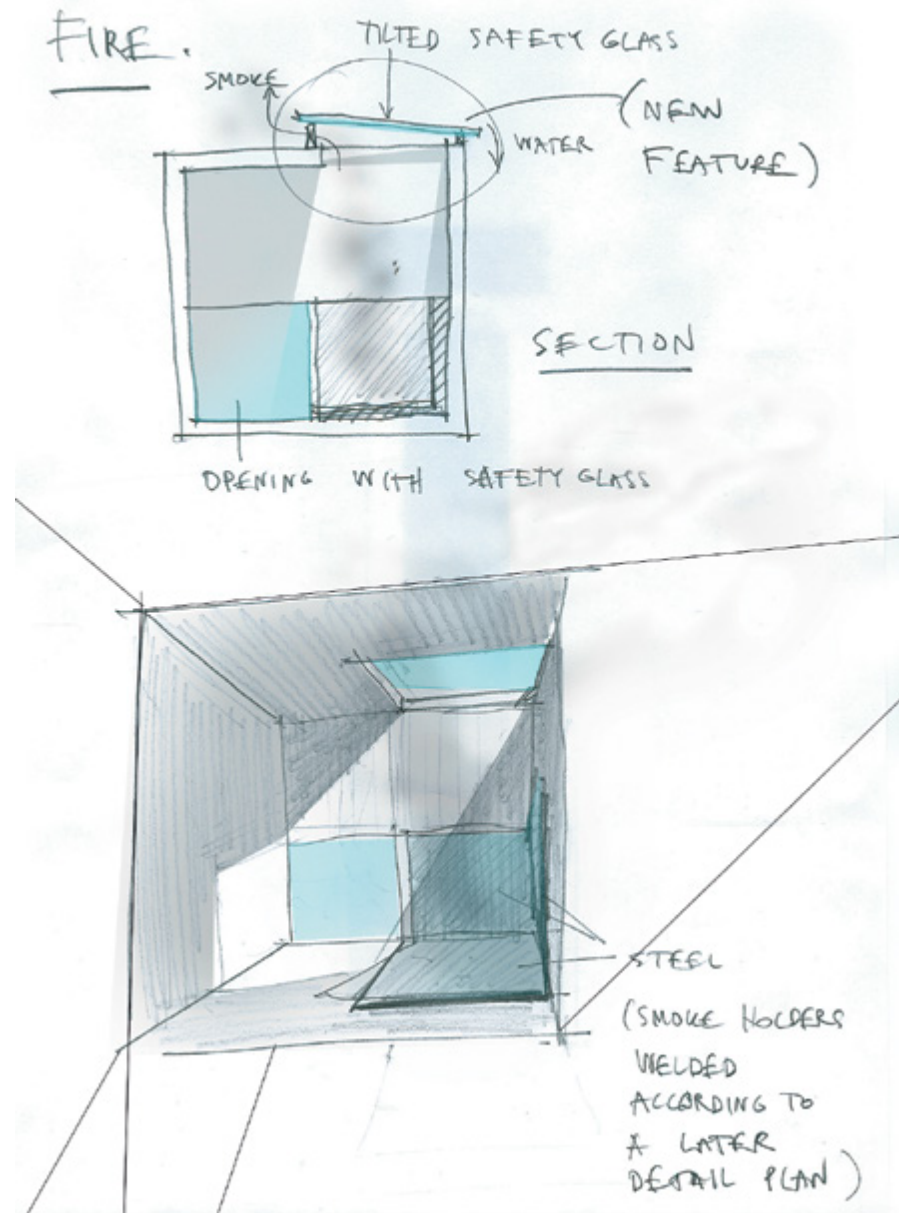 FIRE.
TILTED SAFETY GLASS
SMOKE
(NEW
FEATURE)
WATER
SECTION
OPENING WITH SAFETY GLASS
STEEL
(SMOKE HOLDERS
WELDED
ACCORDING TO
A LATER
DETAIL PLAN)